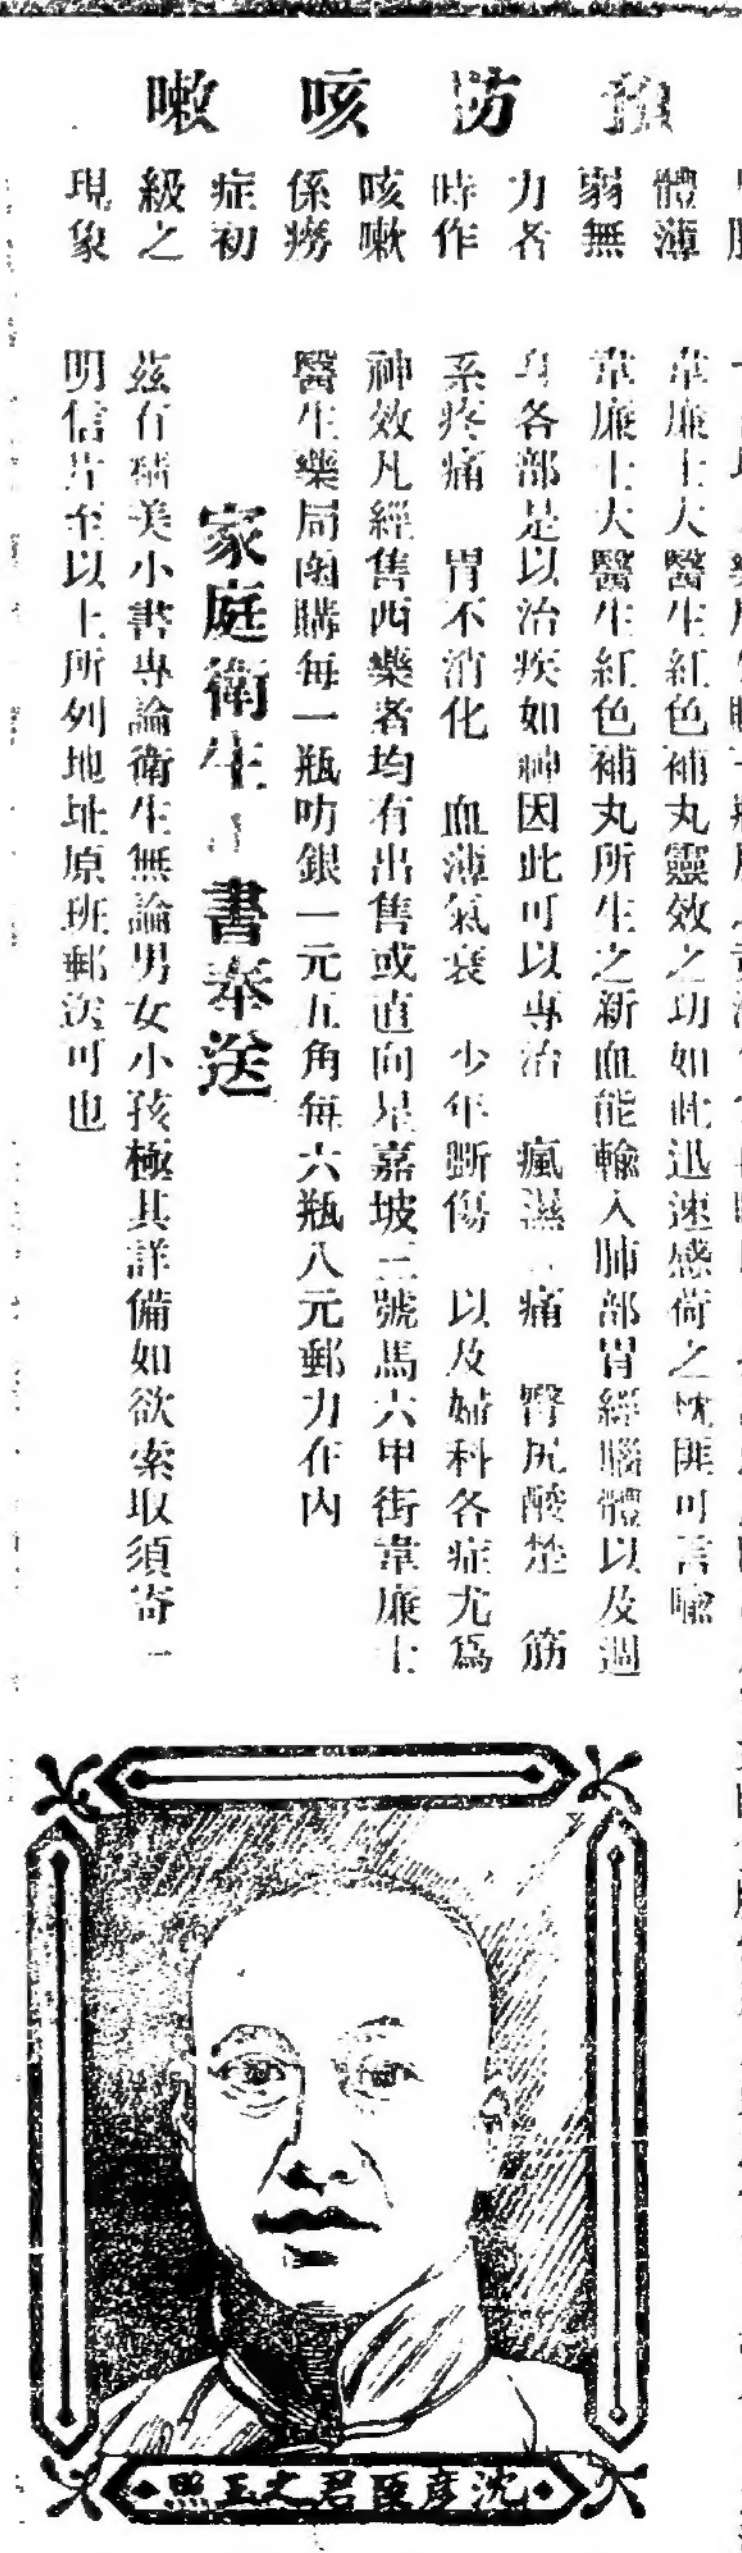 預防咳嗽
體薄
弱無
力者
時作
咳嗽
係癆
症初
級之
現象
韋廉士大醫生紅色補丸靈效之功如此迅速感荷之忱匪可言喩
韋廉士大醫生紅色補丸所生之新血能輸入肺部胃經腦體以及週
身各部是以治疾如神因此可以專治 瘋濕 痛 臀尻酸楚 筋
系疼痛 胃不消化 血薄氣衰 少年斲傷 以及婦科各症尤爲
神效凡經售西藥者均有出售或直向星嘉坡三號馬六甲街韋廉士
醫生藥局函購每一瓶叻銀一元五角每六瓶八元郵力在內
家庭衛生 書奉送
茲有精美小書專論衛生無論男女小孩極其詳備如欲索取須寄一
明信片至以上所列地址原班郵送可也
沈彥 君之玉照